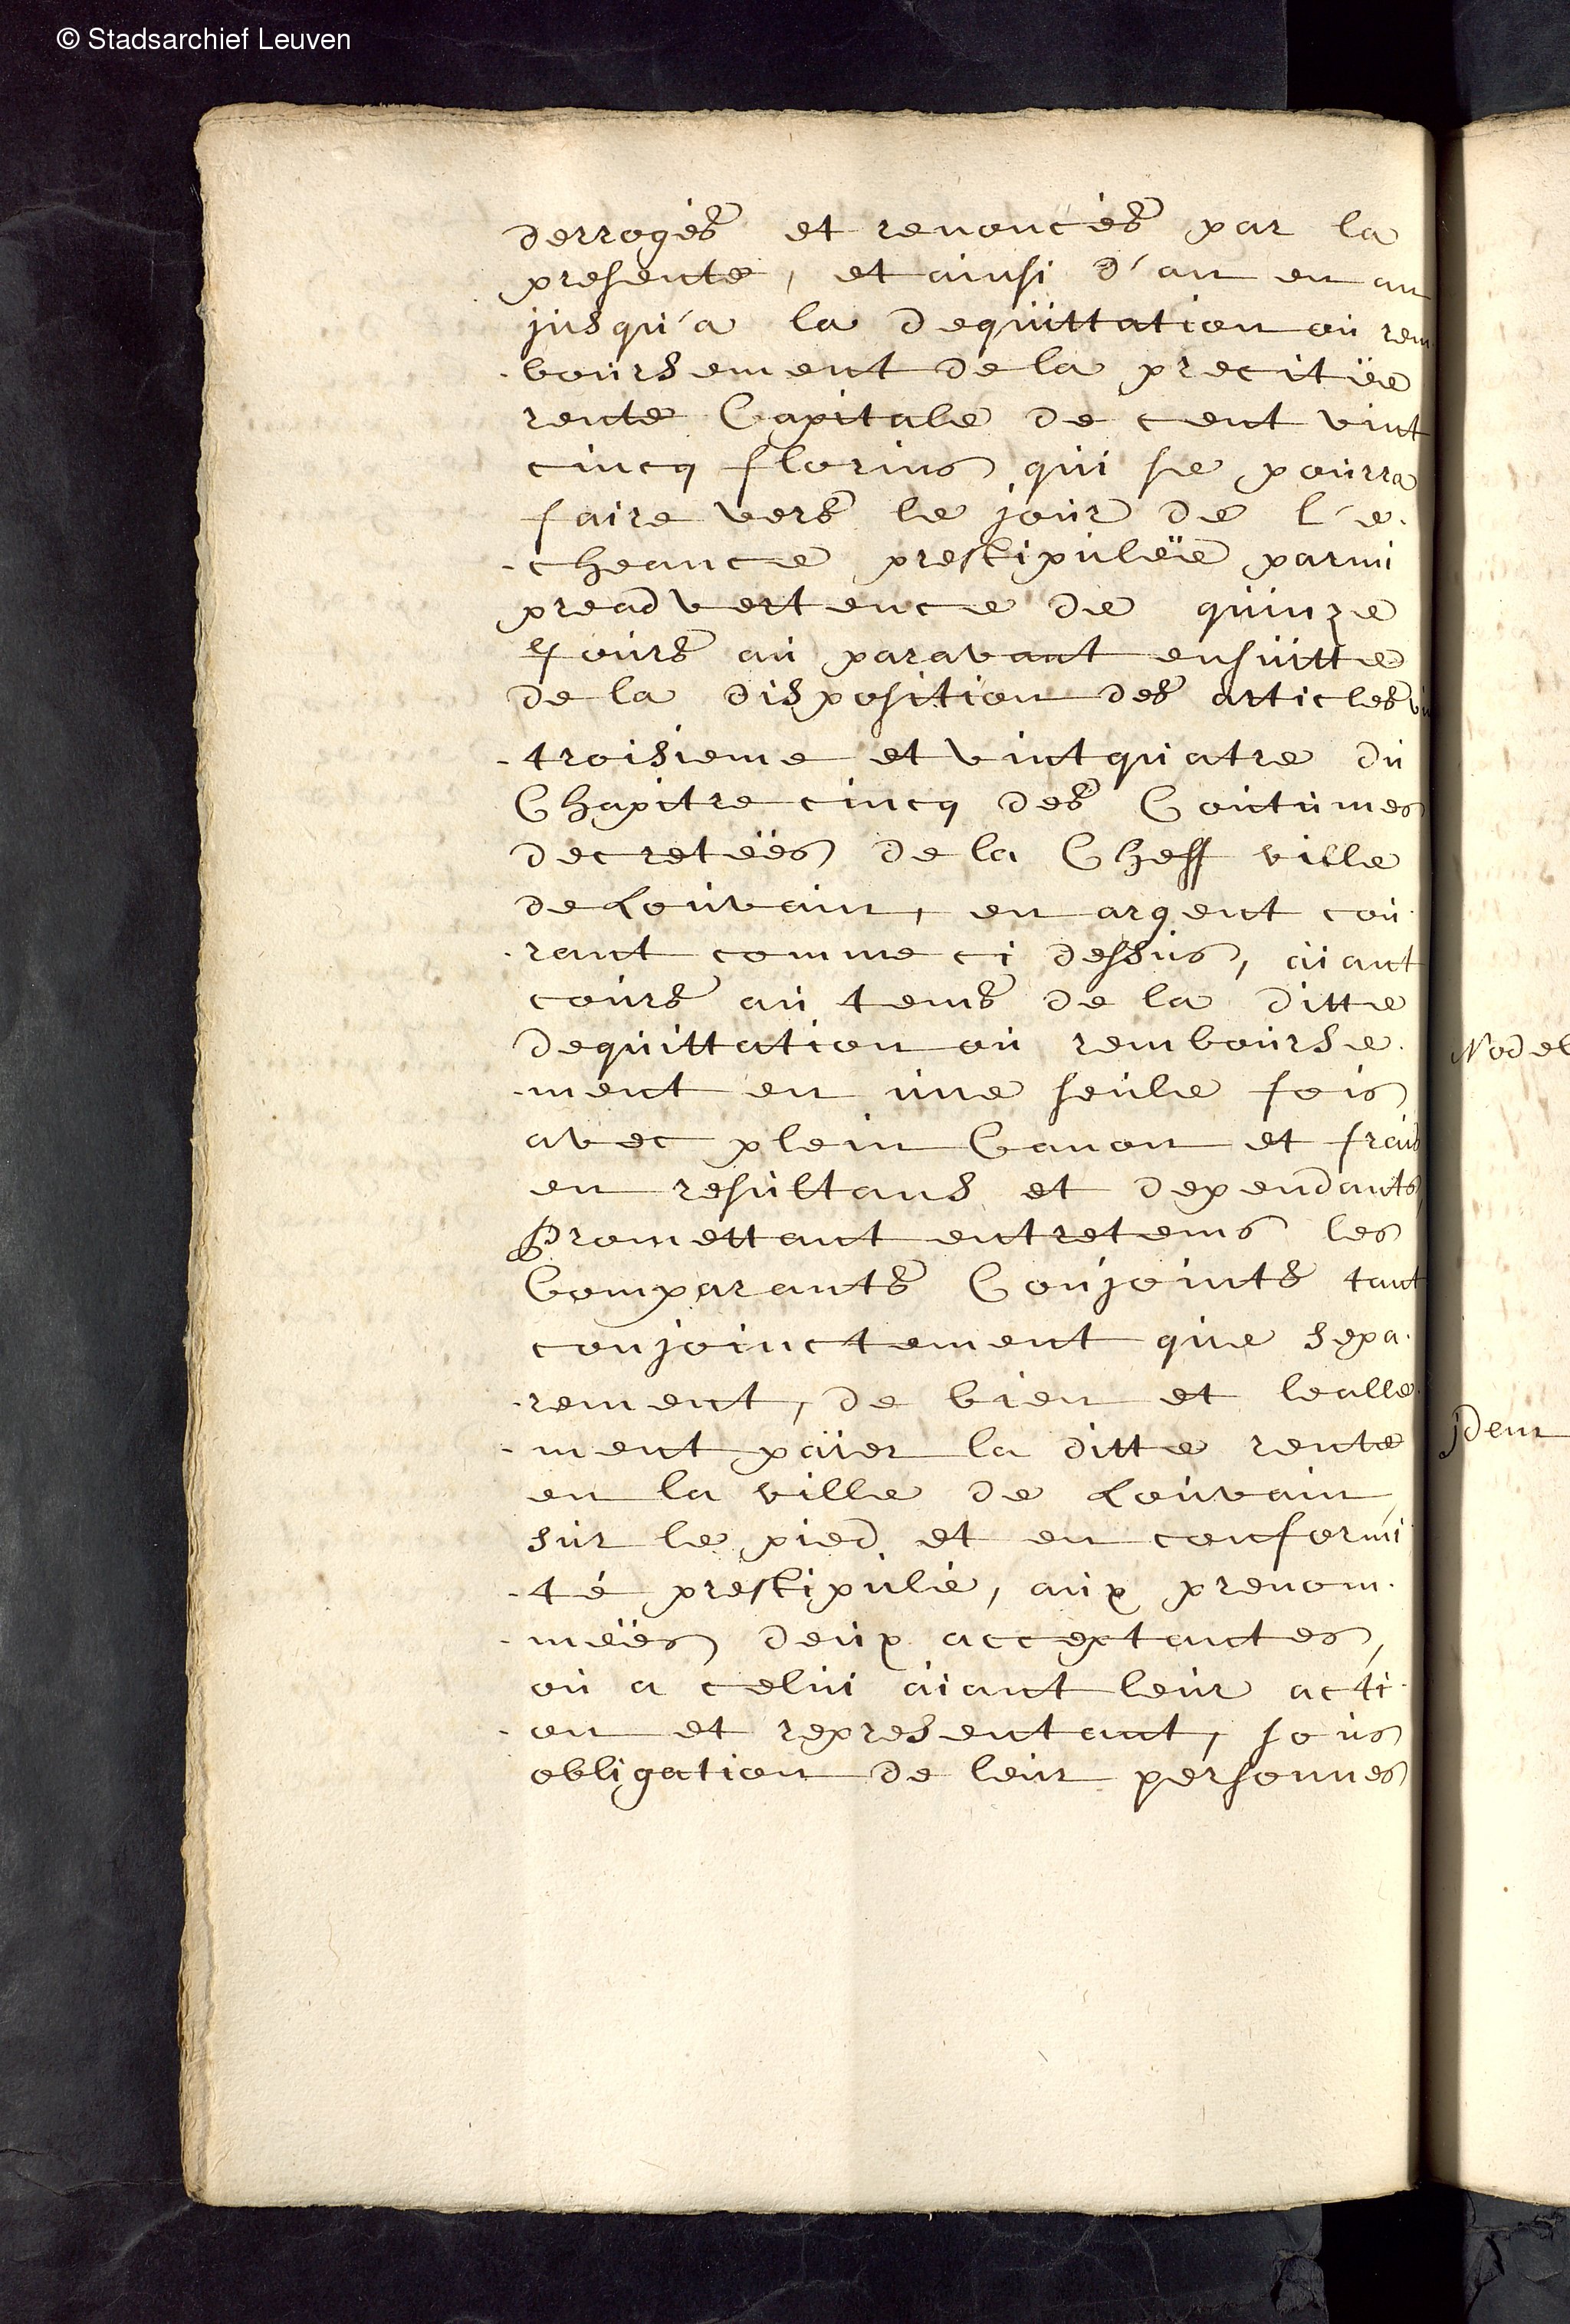 © Stadsarchief Leuven
derrogés et renoncés par la
presente, et ainsi d'an en an
jusqu'a la dequittation ou rem
-boursement de la precitée
rente Capitale de cent vint
cincq florins qui se pourra
faire vers le jour de l'e-
-cheance prestipulée parmi
preadvertence de quinze
jours au paravant ensuitte
de la disposition des articles
-troisieme et vintquatre du
Chapitre cincq des Coutumes
decretées de la Cheff ville
de Louvain, en argent cou-
-rant comme ci dessus, aiant
cours au tems de la ditte
dequittation ou rembourse-
-ment en une seule fois
avec plein Canon et frais
en resultans et dependants
Promettant entretems les
Comparants Conjoints tant
conjoinctement que sepa-
-rement, de bien et lealle-
-ment païer la ditte rente
en la ville de Louvain
sur le pied et en conformi
-té prestipulé, aux prenom-
-mées deux acceptantes,
ou a celui aiant leur acti-
-on et representant, sous
obligation de leur personnes